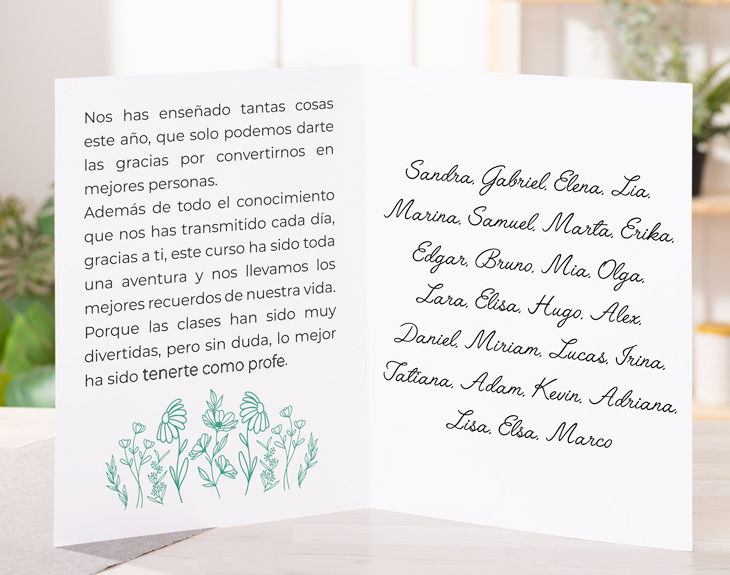 Nos has enseñado tantas cosas
este año, que solo podemos darte
las gracias por convertirnos en
mejores personas.
Además de todo el conocimiento
que nos has transmitido cada día,
gracias a ti, este curso ha sido toda
una aventura y nos llevamos los
mejores recuerdos de nuestra vida.
Porque las clases han sido muy
divertidas, pero sin duda, lo mejor
ha sido tenerte como profe.
Sandra, Gabriel, Elena, Lia,
Marina, Samuel, Marta, Erika,
Edgar, Bruno, Mia, Olga,
Lara, Elisa, Hugo, Alex,
Daniel, Miriam, Lucas, Irina,
Tatiana, Adam, Kevin, Adriana,
Lisa, Elsa, Marco